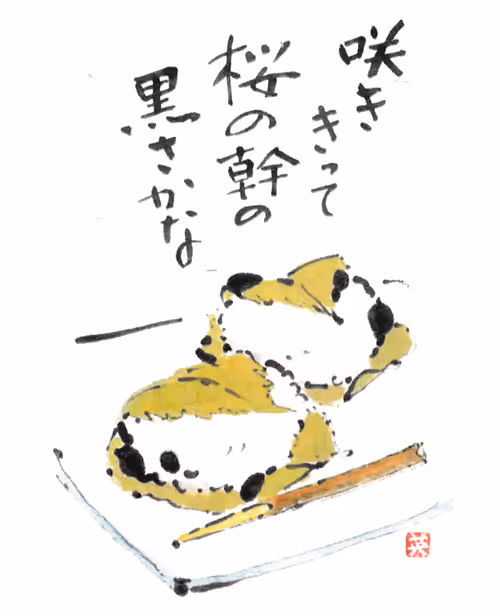 咲き
きって
桜の幹の
黒さかな
英